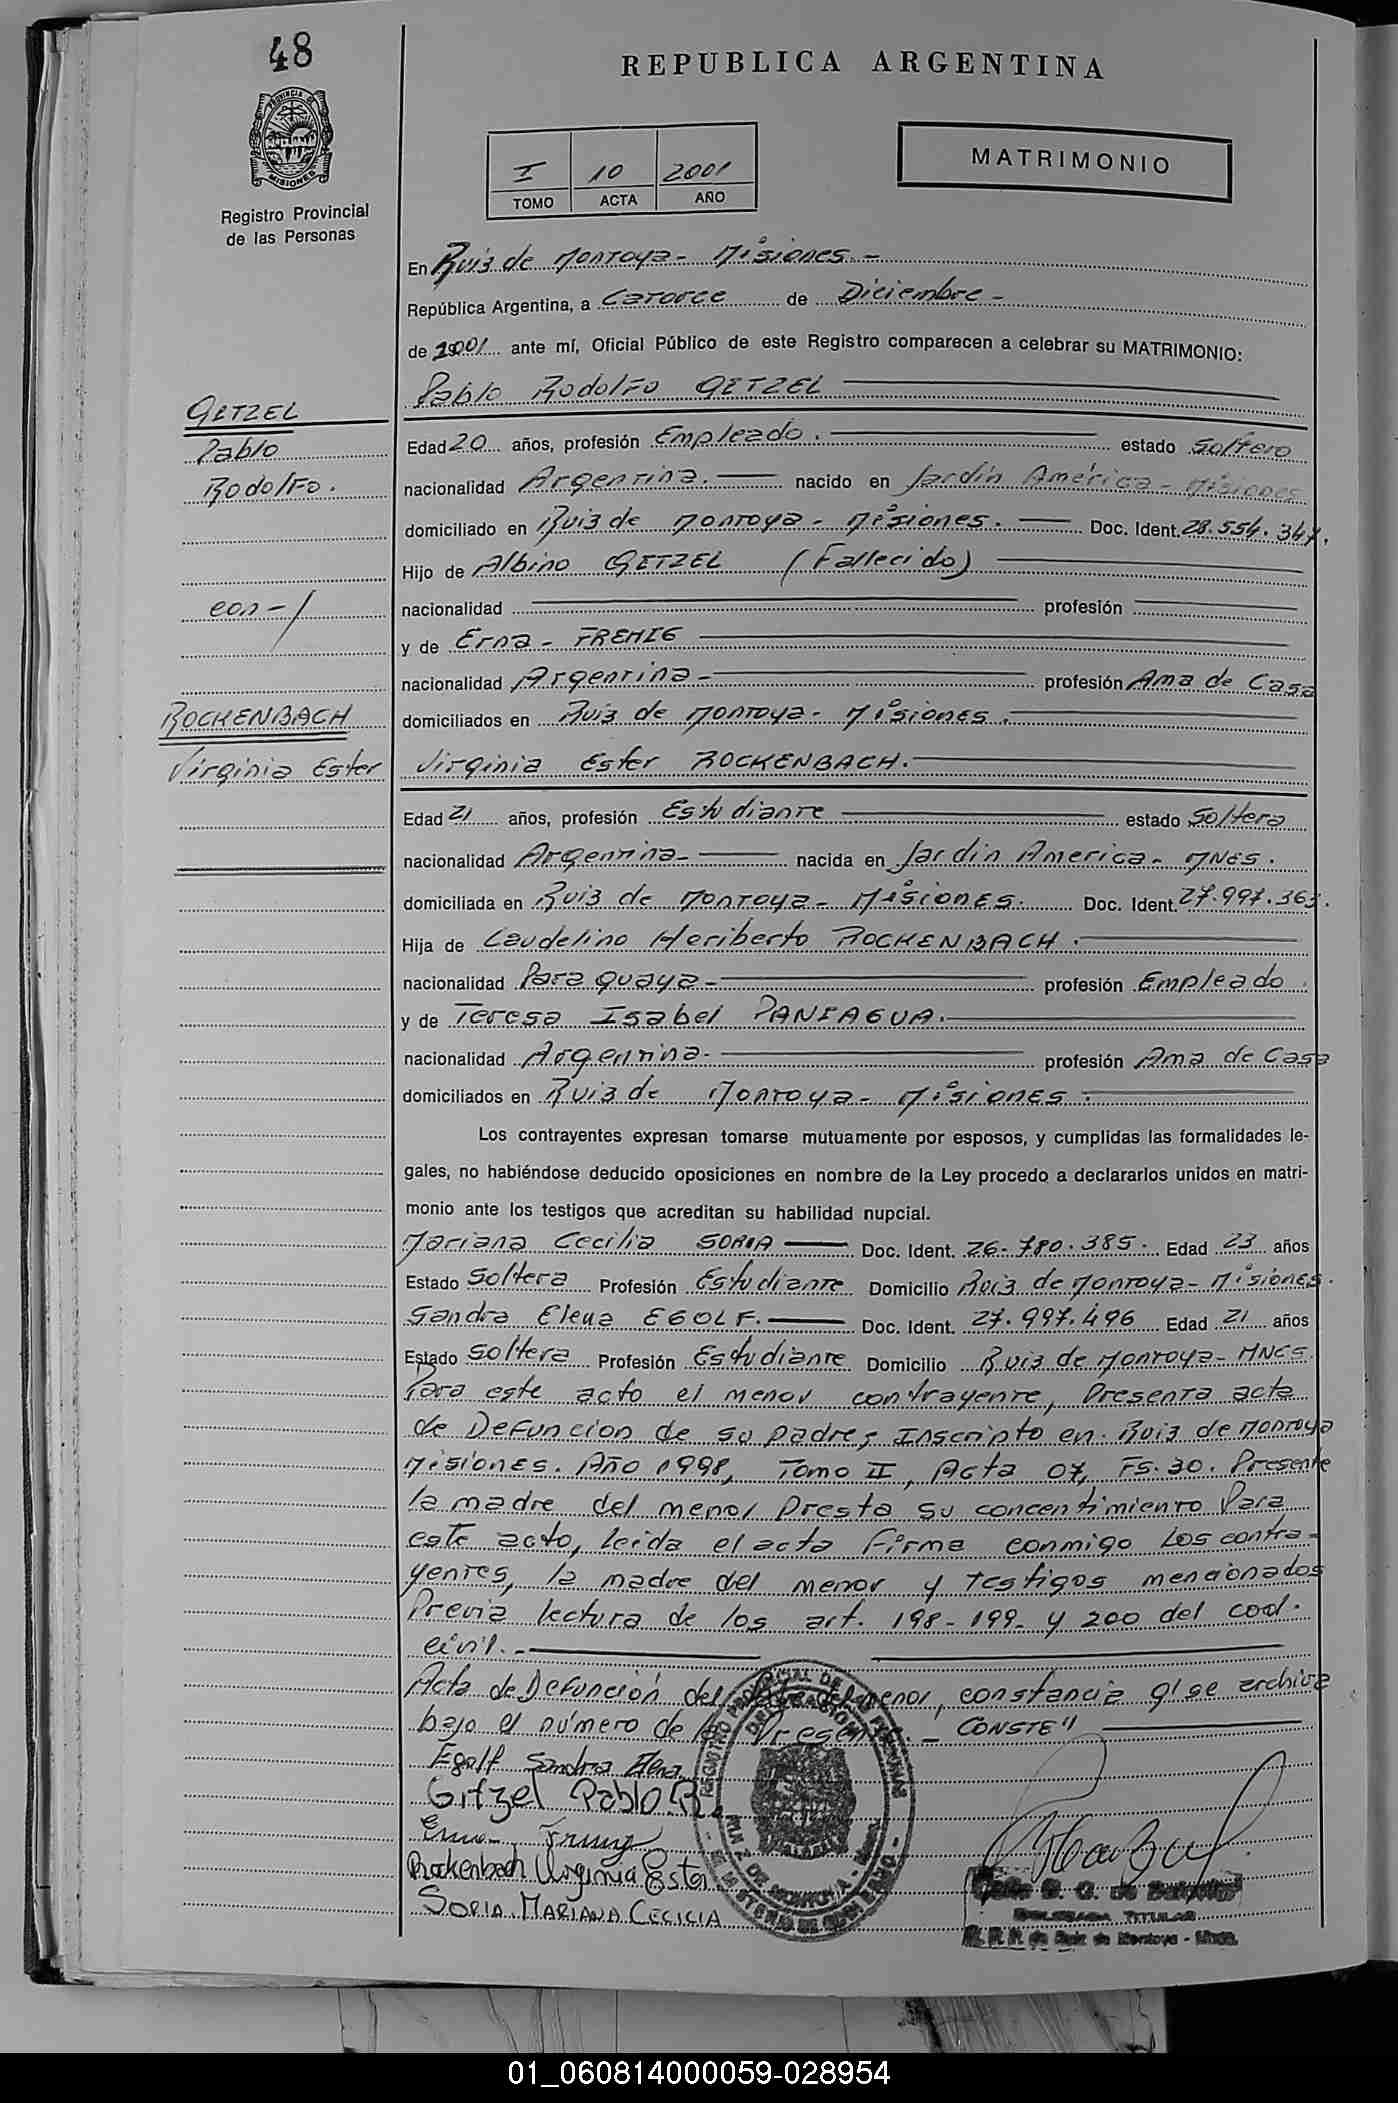 48
REPUBLICA ARGENTINA
PROVINCIA DE
MISIONES
Registro Provincial
de las Personas
I 10 2001
TOMO ACTA AÑO
MATRIMONIO
En Ruiz de Montoya - Misiones. -
República Argentina, a Catorce de Diciembre -
de 2001 ante mí, Oficial Público de este Registro comparecen a celebrar su MATRIMONIO:
Pablo Rodolfo GETZEL
GETZEL
Pablo
Rodolfo.
Edad 20 años, profesión Empleado. estado Soltero
nacionalidad Argentina. nacido en Jardín América - Misiones
domiciliado en Ruiz de Montoya - Misiones. Doc. Ident. 28.554.347.
Hijo de Albino GETZEL (Fallecido)
con-/
nacionalidad profesión
y de Erna - FREHIG
nacionalidad Argentina - profesión Ama de Casa
domiciliados en Ruiz de Montoya - Misiones.
ROCKENBACH
Virginia Ester
Virginia Ester ROCKENBACH.
Edad 21 años, profesión Estudiante estado Soltera
nacionalidad Argentina - nacida en Jardin America - MNES.
domiciliada en Ruiz de Montoya - Misiones. Doc. Ident. 27.997.363.
Hija de Laudelino Heriberto ROCKENBACH.
nacionalidad Paraguaya - profesión Empleado
y de Teresa Isabel PANIAGUA.
nacionalidad Argentina - profesión Ama de Casa
domiciliados en Ruiz de Montoya - Misiones.
Los contrayentes expresan tomarse mutuamente por esposos, y cumplidas las formalidades le-
gales, no habiéndose deducido oposiciones en nombre de la Ley procedo a declararlos unidos en matri-
monio ante los testigos que acreditan su habilidad nupcial.
Mariana Cecilia SORIA Doc. Ident. 26.780.385. Edad 23 años
Estado Soltera Profesión Estudiante Domicilio Ruiz de Montoya - Misiones.
Sandra Elena EGOLF. Doc. Ident. 27.997.496 Edad 21 años
Estado Soltera Profesión Estudiante Domicilio Ruiz de Montoya - MNES.
Para este acto el menor contrayente, Presenta acta
de Defuncion de su padre; Inscripto en Ruiz de Montoya
Misiones. Año 1998, Tomo II, Acta 07, Fs. 30. Presente
la madre del menor Presta su concentimiento Para
este acto, leida el acta firma conmigo los contra-
yentes, la madre del menor y testigos mencionados
Previa lectura de los art. 198 - 199 - y 200 del cod.
civil. -
Acta de Defunción del menor, constancia q' se archiva
bajo el número de la Presente. - CONSTE"
Egolf Sandra Elena
Gitzel Pablo R.
Erna
Rockenbach Virginia Ester
SORIA MARIANA CECILIA
REGISTRO PROVINCIAL DE LAS PERSONAS
DELEGADA TITULAR
R. P. P. de Ruiz de Montoya - Mnes.
01_060814000059-028954